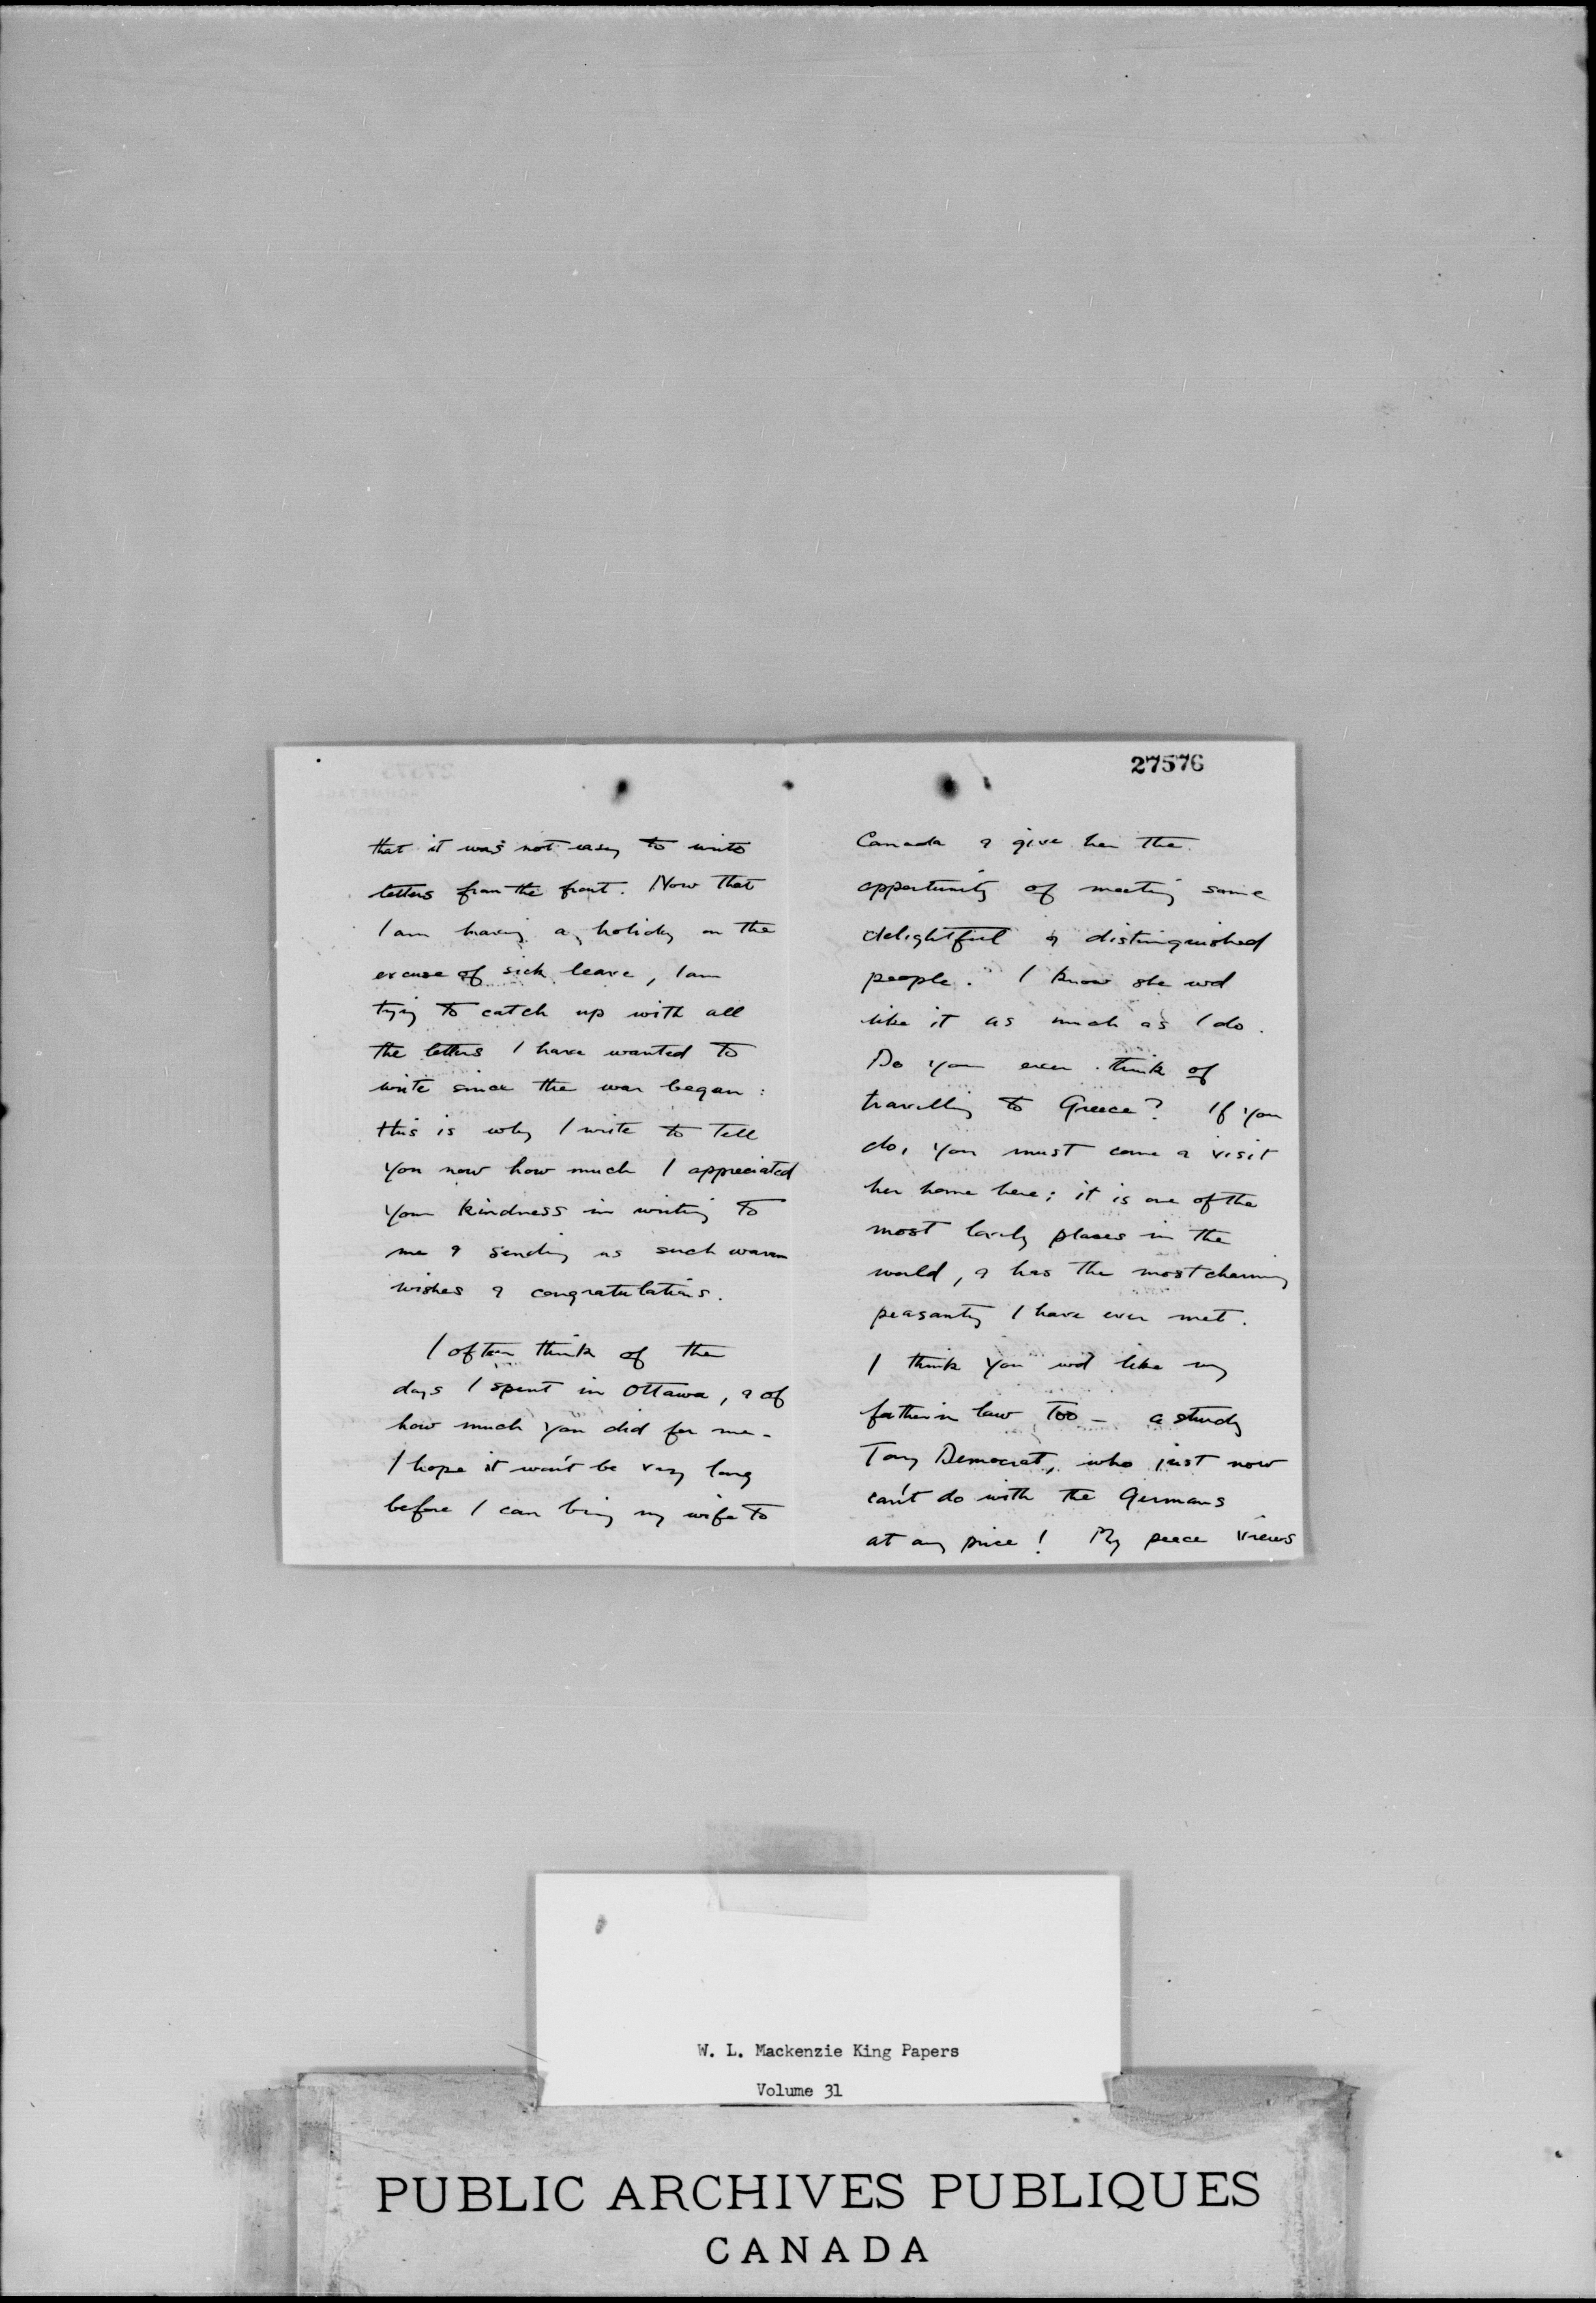 that it was not easy to write
letters from the front. Now that
I am having a holiday on the
excuse of sick leave, I am
trying to catch up with all
the letters I have wanted to
write since the war began:
this is why I write to tell
you now how much I appreciated
your kindness in writing to
me & sending us such warm
wishes & congratulations.
I often think of the
days I spent in Ottawa, & of
how much you did for me.
I hope it won't be very long
before I can bring my wife to
27576
Canada & give her the
opportunity of meeting some
delightful & distinguished
people. I know she wd
like it as much as I do.
Do you ever think of
travelling to Greece? If you
do, you must come & visit
her home here; it is one of the
most lovely places in the
world, & has the most charming
peasantry I have ever met.
I think you wd like my
father in law too - a sturdy
Tory Democrat, who just now
can't do with the Germans
at any price! My peace views
W. L. Mackenzie King Papers
Volume 31
PUBLIC ARCHIVES PUBLIQUES
CANADA